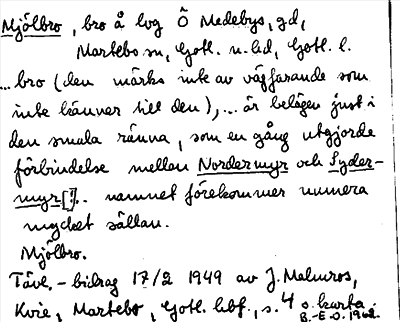 Mjölbro, bro å lvg Ö Medebys, gd,
Martebo sn, Gotl. n. hd, Gotl. l.
...bro (den märks inte av vägfarande som
inte känner till den),... är belägen just i
den smala ränna, som en gång utgjorde
förbindelse mellan Nordermyr och Syder-
myr[?].. namnet förekommer numera
mycket sällan.
Mjölbro.
Tävl.-bidrag 17/2 1949 av J. Malmros,
Kvie, Martebo, Gotl. hbf., s. 4 o. karta.
B.-E. O. 1962.